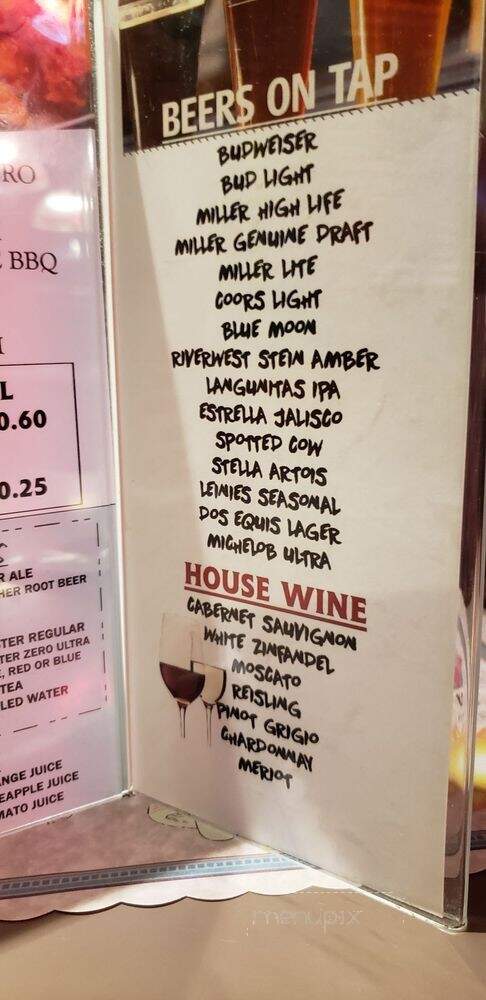 RO
BBQ
L
0.60
0.25
R ALE
HER ROOT BEER
STER REGULAR
TER ZERO ULTRA
, RED OR BLUE
TEA
LED WATER
NGE JUICE
EAPPLE JUICE
MATO JUICE
BEERS ON TAP
BUDWEISER
BUD LIGHT
MILLER HIGH LIFE
MILLER GENUINE DRAFT
MILLER LITE
COORS LIGHT
BLUE MOON
RIVERWEST STEIN AMBER
LANGUNITAS IPA
ESTRELLA JALISCO
SPOTTED COW
STELLA ARTOIS
LEINIES SEASONAL
DOS EQUIS LAGER
MICHELOB ULTRA
HOUSE WINE
CABERNET SAUVIGNON
WHITE ZINFANDEL
MOSCATO
REISLING
PINOT GRIGIO
CHARDONNAY
MERLOT
menupix